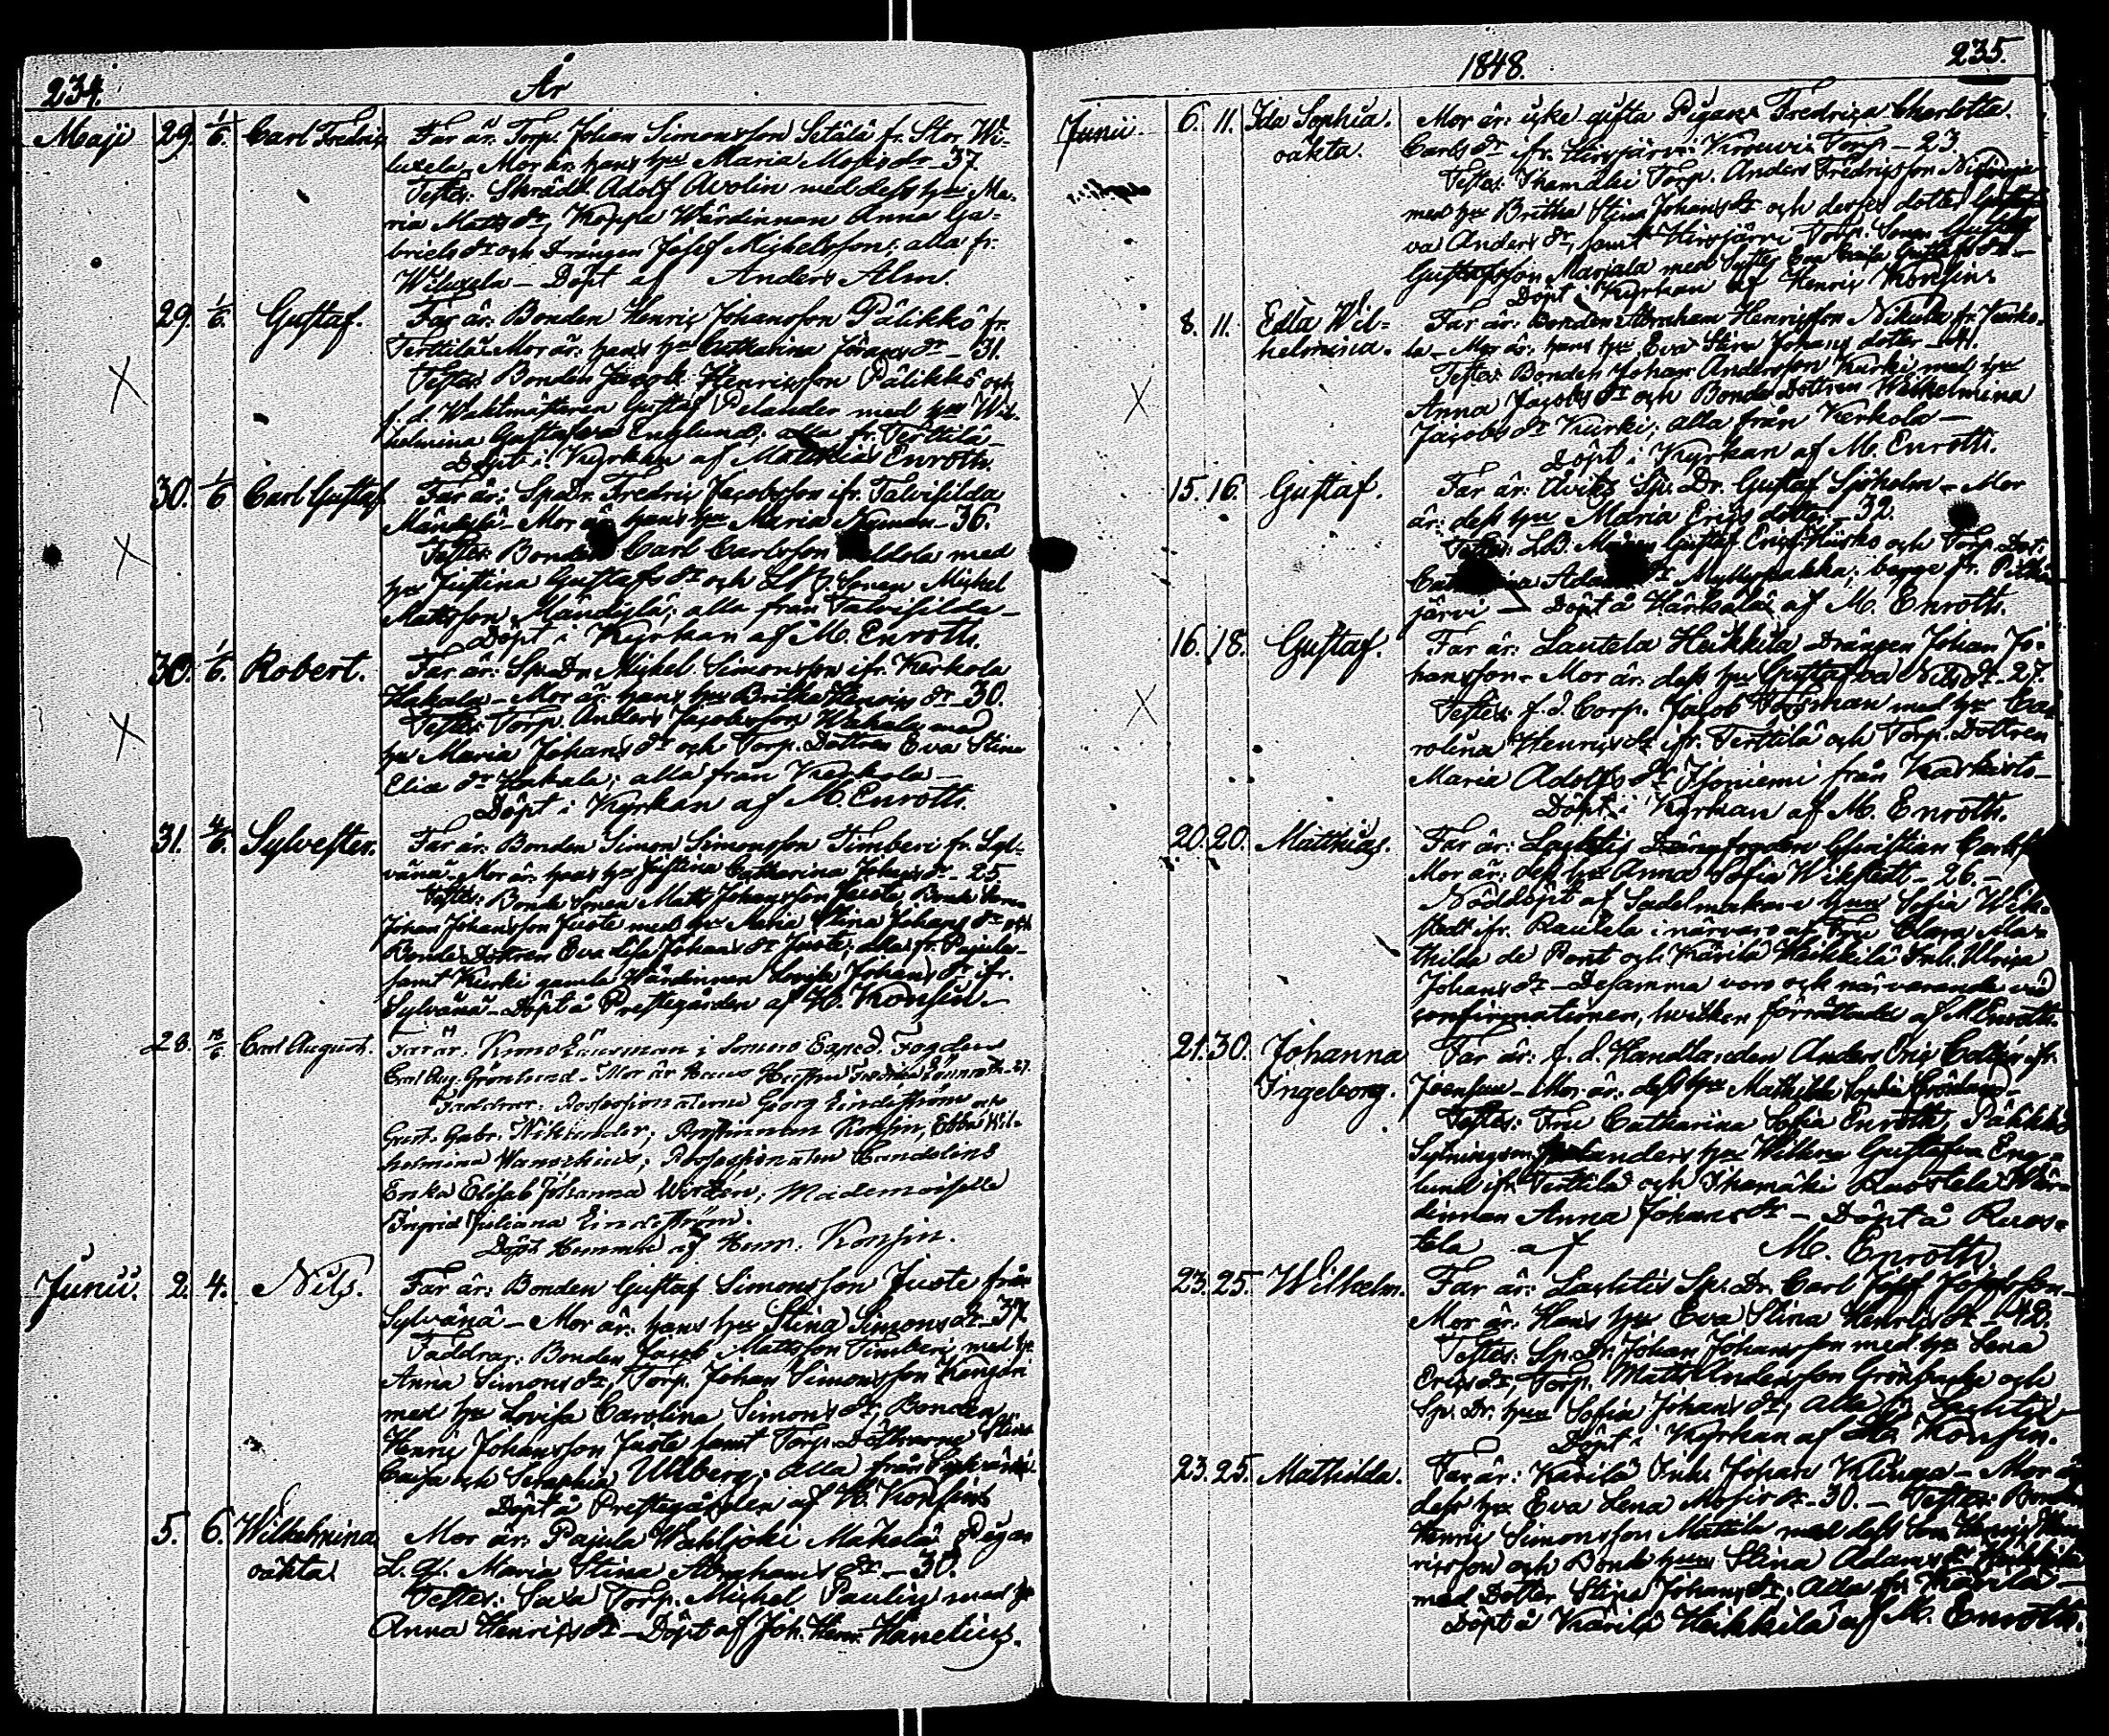 234. År
Maji 29. 1/6. Carl Fredric Far är: Torp. Johan Simonsson Setälä fr. Stor Wi-
luxela, Mor är: hans hu Maria Mosis dr - 37.
Testes: Skrädd. Adolf Avolin med dess hu Ma-
ria Matts dr, Koppla Wärdinnan Anna Ga-
briels dr och Drängen Josef Michelsson: alla fr.
Wiluxela - Döpt af Anders Alm.
29. 1/6. Gustaf. Far är: Bonden Henric Johansson Pälikkö fr.
Terttilä. Mor är: hans hu Catharina Jöransdr - 31.
Testes: Bonden Jacob Henricsson Pälikkö och
f.d. Waktmästeren Gustaf Pelander med hu Wil-
helmina Gustafva Englund; alla fr. Terttilä -
Döpt i Kyrkan af Matthias Enroth.
30. 1/6 Carl Gustaf. Far är: Sp. Dr. Fredric Jacobsson ifr. Talvisilda
Mändylä - Mor är hans hu Maria Nyman - 36.
Testes: Bonden Carl Carlsson med
hu Justina Gustafs dr och Sonen Michel
Mattsson Mändylä; alla från Talvisilda -
Döpt i Kyrkan af M. Enroth.
30. 1/6. Robert. Far är: Sp. Dr. Michel Simonsson ifr. Kerkola
Hakala - Mor är: hans hu Britha Henrics dr - 30.
Testes: Torp. Anders Jacobsson Hakala med
hu Maria Johans dr och Torp. Dottren Eva Stina
Elice dr Hakala; alla från Kerkola -
Döpt i Kyrkan af M. Enroth.
31. 4/6. Sylvester. Far är: Bonden Simon Simonsson Timberi fr. Syl-
vänä. Mor är: hans hu Justina Catharina Johans dr - 25
Testes: Bonde Sonen Matts Johansson Juste, Bonde Sonen
Johan Johansson Juste med hu Maria Stina Johans dr och
Bonde Dottren Eva Lisa Johans dr Juste; alla fr. Pajula-
samt Kurki gamla Wärdinnan Lovisa Johans dr ifr.
Sylvänä - Döpt å Prestegården af H. Konsin. -
28. Carl August. Far är: Krono Länsman i Somero Exped. Fogden
Carl Aug. Grönlund - Mor är Hans Hustru Fredrika Lönnroth - 27.
Faddrar: Possessionaterne Georg Lindström och
Gust. Gabr. Niklander; Prostinnan Konsin, Ebba Wil-
helmina Wanochius; Possessionaten Candelins
Enka Elisab. Johanna Wirzen; Mademoiselle
Ingrid Juliana Lindström.
Döpt Hemma af Henr. Konsin.
Junii. 2. 4. Nils. Far är: Bonden Gustaf Simonsson Juste från
Sylvänä - Mor är: hans hu Stina Simons dr - 37.
Faddrar: Bonden Jacob Mattsson Timberi, med hu
Anna Simons dr, Torp. Johan Simonsson Kanjäri
med hu Lovisa Carolina Simons dr, Bonden
Henric Johansson Juste samt Torp. Döttrarne Stina
Caisa och Seraphia Ullberg; Alla från
Döpt å Prestegården af H. Konsin.
5. 6. Wilhelmina Mor är: Pajula Wahljoki Mäkelä Pigan
oäkta. L. Q. Maria Stina Abrahams dr - 30.
Testes: Saxa Torp. Michel Paulin med hu
Anna Henrics dr - Döpt af Joh. Henr. Hanelius.
1848. 235.
Junii. 6. 11. Ida Sophia. Mor är: icke gifta Pigan Fredrica Charlotta
oäkta. Carls dr ifr. Hirsjärvi Krouvi Torp - 23.
Testes: Ihamäki Torp. Anders Fredricsson
med hu Britha Stina Johans dr och desses dotter Gusta-
va Anders dr, samt Hirsjärvi Torp. Sonen Gustaf
Gustafsson Marjala med Syster Eva Caisa Gustafs dr -
Döpt i Kyrkan af Henric Konsin.
8. 11. Edla Wil- Far är: Bonden Abraham Henricsson Nikula fr. Kerko-
helmina. la - Mor är: hans hu Eva Stina Johans dotter - 41.
Testes: Bonden Johan Andersson Kurki med hu
Anna Jacobs dr och Bonde Dottren Wilhelmina
Jacobs dr Kurki; alla från Kerkola -
Döpt i Kyrkan af M. Enroth.
15. 16. Gustaf. Far är: Åviks Sp. Dr. Gustaf Sjöholm - Mor
är: dess hu Maria Erics dotter - 32.
Testes: L.B. Gustaf Ericss. och Torp. Dot:
Myllypakka; begge fr. Pitkä-
järvi - Döpt å Härkälä af M. Enroth.
16. 18. Gustaf. Far är: Lautela Heikkilä Drängen Johan Jo-
hansson - Mor är: dess hu Gustafva Nils dr - 27.
Testes: f.d. Corp. Jacob Forsman med hu Ca-
rolina Henrics dr ifr. Terttilä och Torp. Dottren
Maria Adolfs dr Isoniemi från Karkis -
Döpt i Kyrkan af M. Enroth.
20. 20. Matthias. Far är: Lahtis Christian
Mor är: dess hu Anna Sofia Wikstedt - 26. -
Nöddöpt af Sadelmakare hun Sofia Wik-
stedt ifr. Rautela i närvaro af Fru Clara Ma-
thilda de Pont och Kärilä Heikkilä Inh. Ulrica
Johans dr - Desamma voro och närvarande vid
confirmationen, hvilken förrättades af M. Enroth.
21. 30. Johanna Far är: f. d. Handlanden Anders Eric Collin ifr.
Ingeborg. Joensuu - Mor är: dess hu Mathilda Sophia Grönlund -
Testes: Fru Catharina Sofia Enroth, Pälikkö
Sytningsm. Pelanders hu Wilhna Gustafva Eng-
lund ifr. Terttilä och Ihamäki Ruostela Wär-
dinnan Anna Johans dr - Döpt å Ruos-
tela af M. Enroth
23. 25. Wilhelm. Far är: Lahtis Sp. Dr. Carl Josef Josefsson -
Mor är: Hans hu Eva Stina Henrics dr - 42.
Testes: Sp. Dr. Johan Johansson med hu Lena
Erics dr, Torp. Matts Andersson och
Sp. Dr. hun Sofia Johans dr; alla fr. Lahtis -
Döpt i Kyrkan af H. Konsin.
23. 25. Mathilda. Far är: Kärilä Inh. Johan Klinga - Mor är
dess hu Eva Lena Mosis dr - 30. - Testes: Bonden
Henric Simonsson Mattila med dess Son Henric Hen-
ricsson och Bonde hun Stina Adams dr Heikkilä
med Dotter Stina Johans dr; alla fr. Kärilä -
Döpt å Kärilä Heikkilä af M. Enroth.